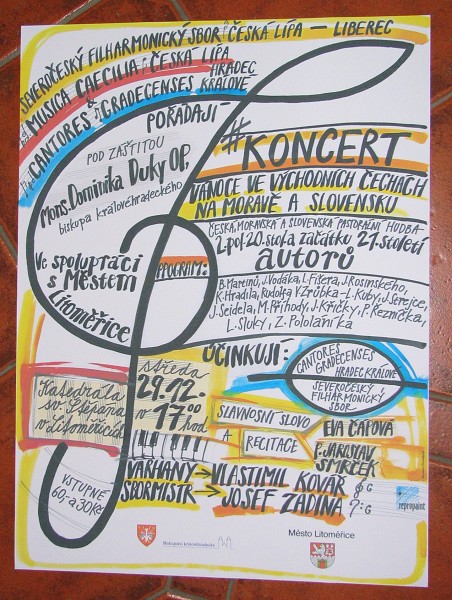 SEVEROČESKÝ FILHARMONICKÝ SBOR ČESKÁ LÍPA – LIBEREC
MUSICA CAECILIA ČESKÁ LÍPA
&
CANTORES GRADECENSES HRADEC KRÁLOVÉ
POŘÁDAJÍ
POD ZÁŠTITOU
Mons. Dominika Duky OP,
biskupa královéhradeckého
#KONCERT
VÁNOCE VE VÝCHODNÍCH ČECHÁCH
NA MORAVĚ A SLOVENSKU
ČESKÁ, MORAVSKÁ A SLOVENSKÁ PASTORÁLNÍ HUDBA-
2.pol. 20.stol. a začátku 21.století
autorů
Ve spolupráci
s Městem
Litoměřice
PROGRAM:
B. Martinů, J. Vodáka, L. Fišera, J. Rosinského,
K. Hradila, Rudolfa Vzrůbka – L. Kuby, J. Šerejce,
J. Seidela, M. Příhody, J. Křičky, P. Řezníčka,
L. Sluky, Z. Pololáníka
ÚČINKUJÍ:
CANTORES
GRADECENSES
HRADEC KRÁLOVÉ
SEVEROČESKÝ
FILHARMONICKÝ
SBOR
Katedrála
sv. Štěpána
v Litoměřicích
středa
29.12.
v 17.00
hod
SLAVNOSTNÍ SLOVO
A
RECITACE
EVA ČÁPOVÁ
P. JAROSLAV
SMRČEK
VARHANY → VLASTIMIL KOVÁŘ
SBORMISTR → JOSEF ZADINA
VSTUPNÉ
60,- a 30 Kč
repropoint
Město Litoměřice